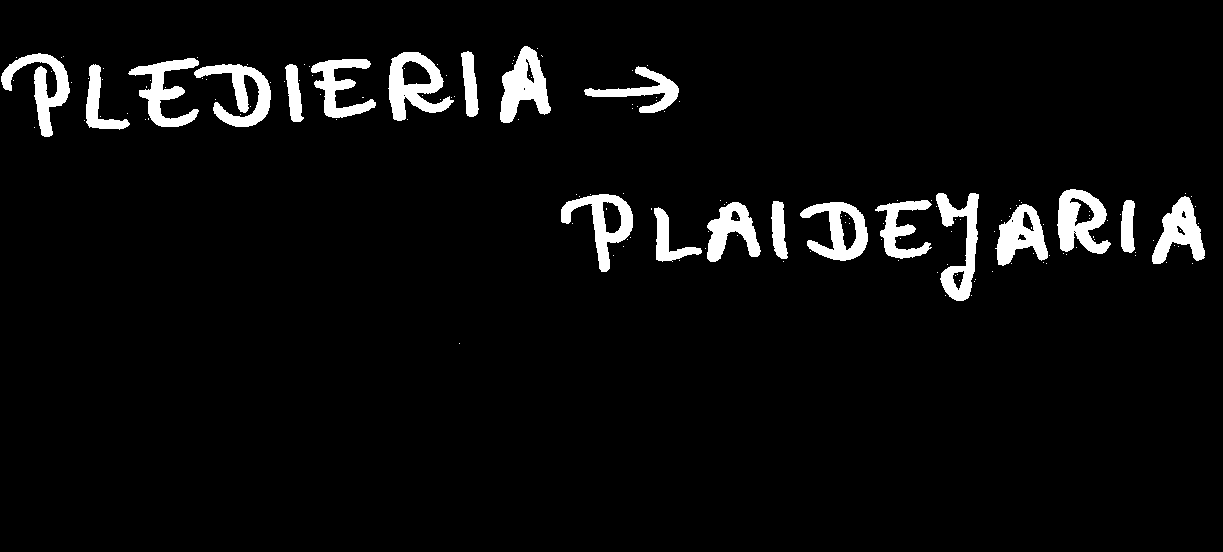 PLEDIERIA →
PLAIDEYARIA